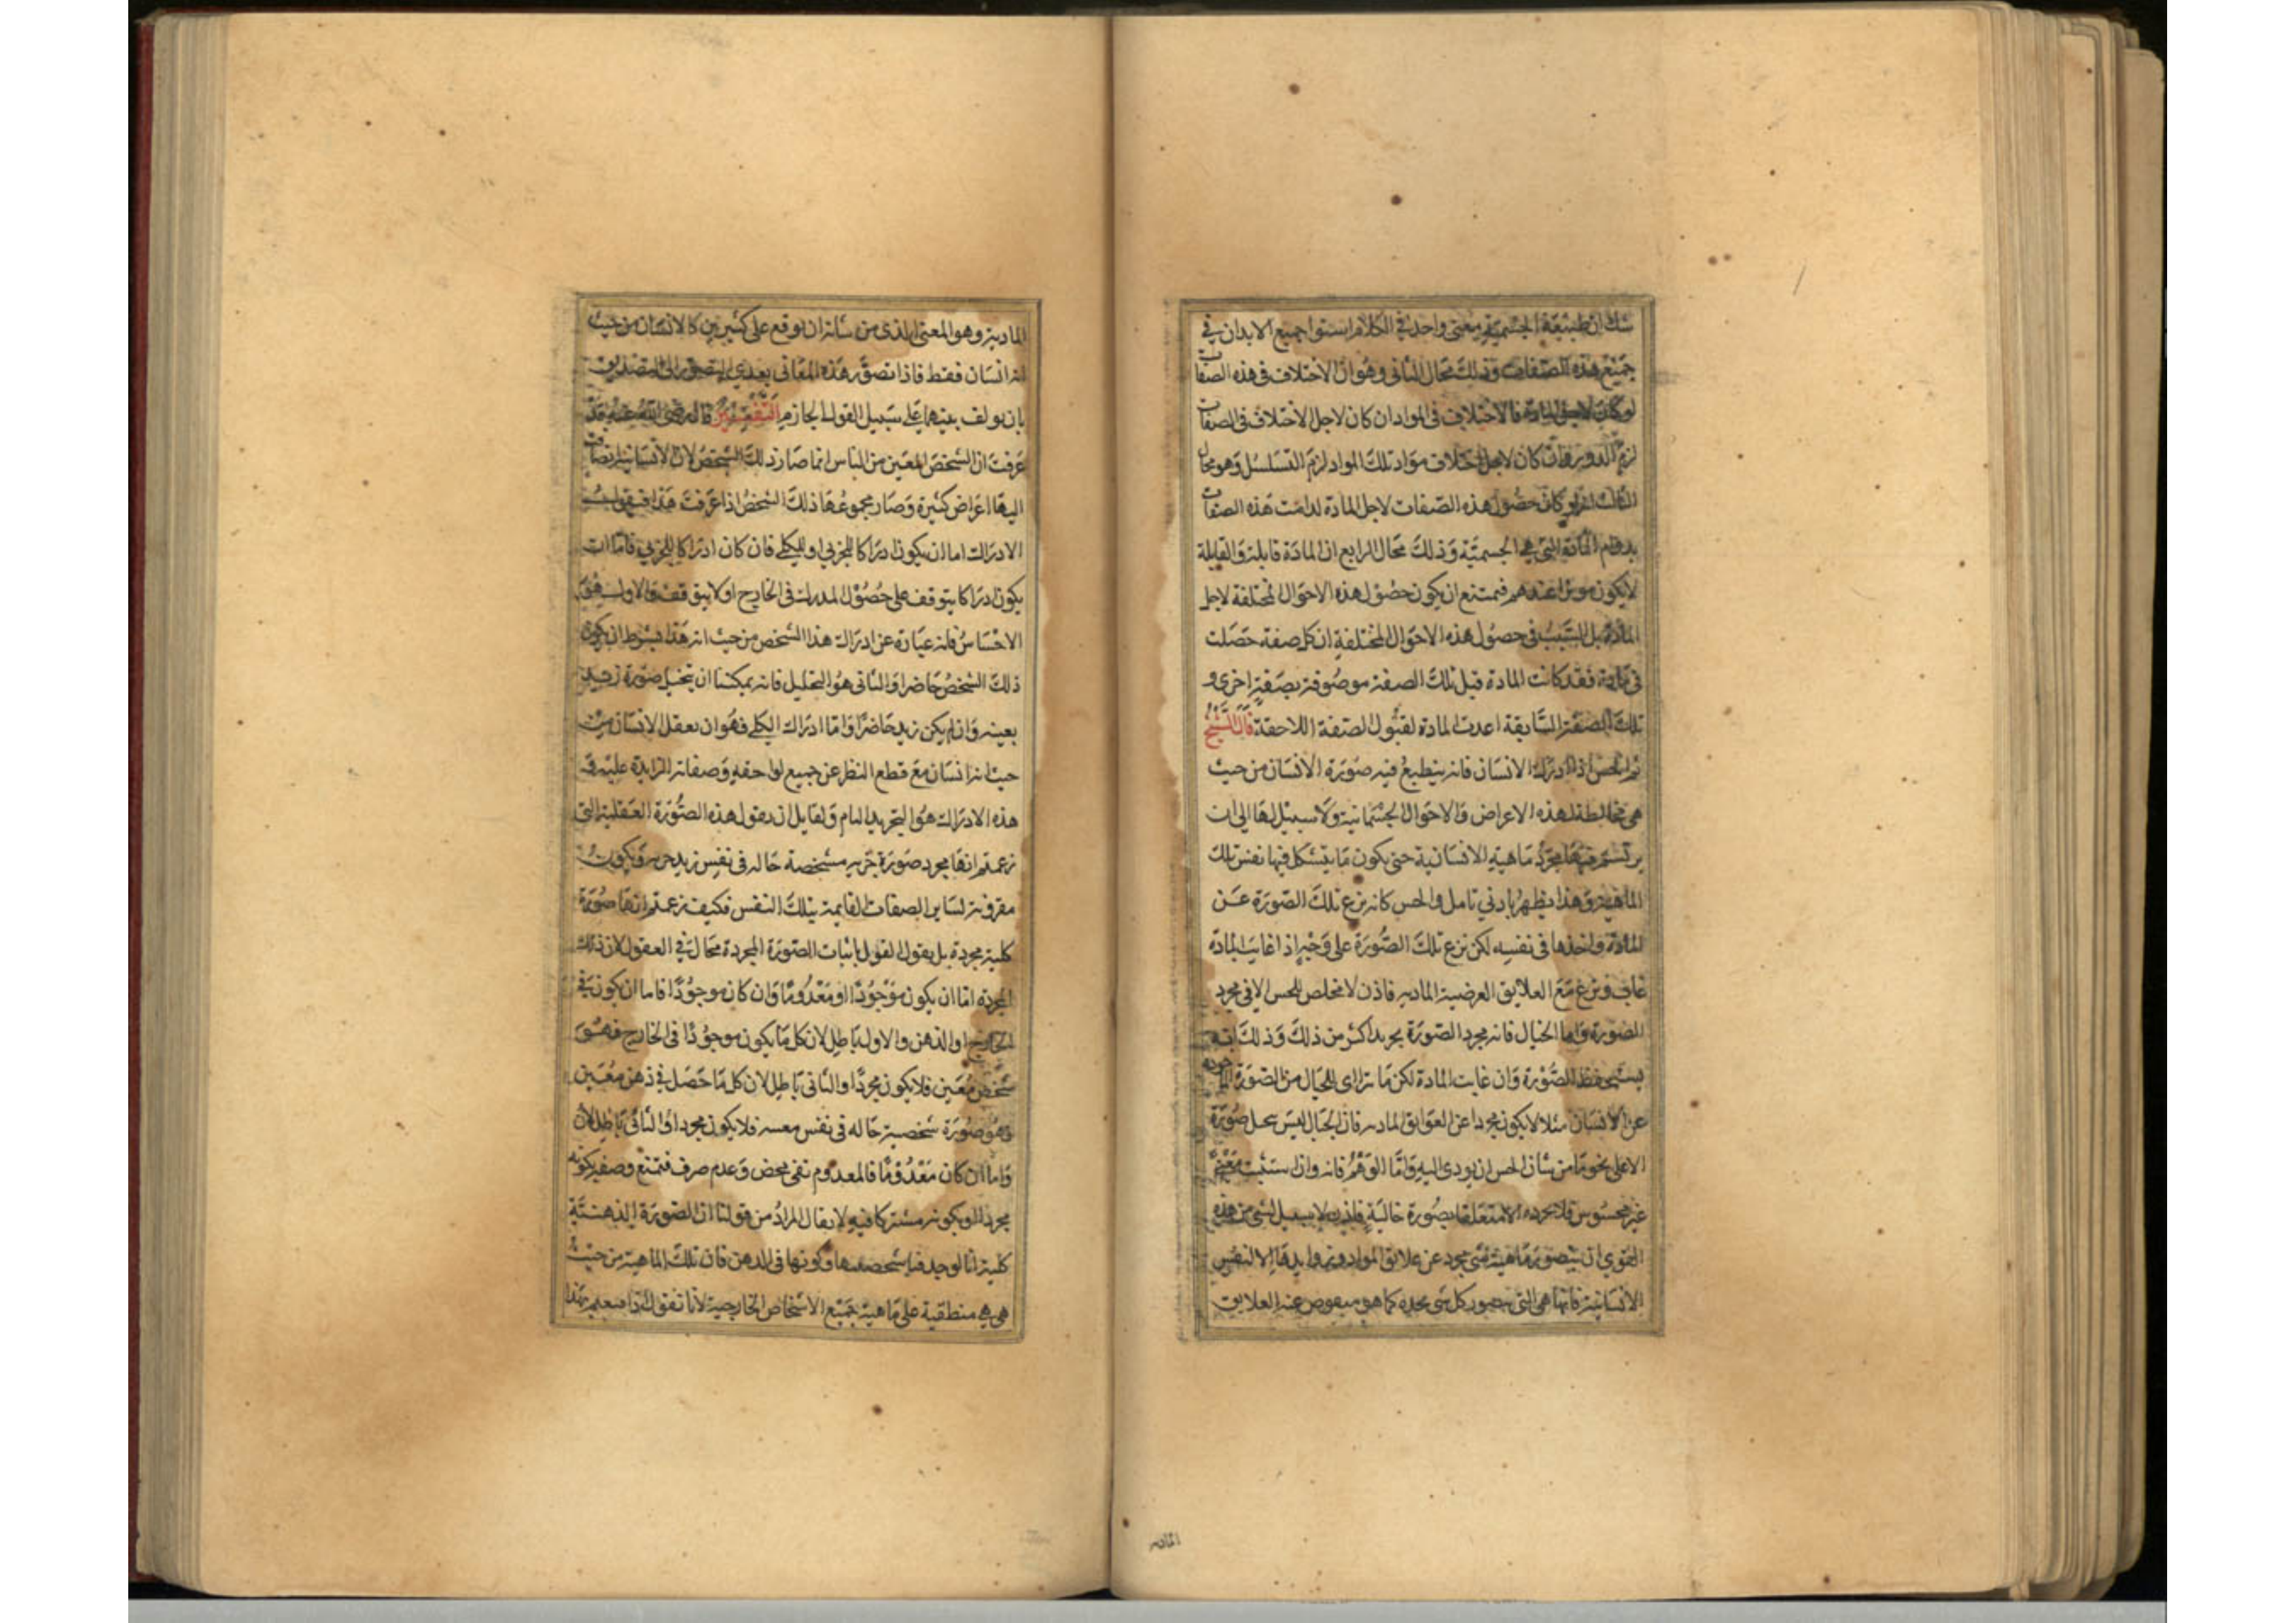 شك ان طبيعة الجسمية معنى واحد في الكلام استوا جميع الابدان في
جميع هذه الصفات وذلك محال الثاني وهو ان الاختلاف في هذه الصفات
لو كان لاجل المادة فالاختلاف في المواد ان كان لاجل الاختلاف في الصفات
لزم الدور وان كان لاجل اختلاف مواد تلك المواد لزم التسلسل وهو محال
الثالث انه لو كان حصول هذه الصفات لاجل المادة لدامت هذه الصفات
بدوام المادة التي هي الجسمية وذلك محال الرابع ان المادة قابلة والقابلة
لا يكون موثرا عندهم فيمتنع ان يكون حصول هذه الاحوال المختلفة لاجل
المادة بل السبب في حصول هذه الاحوال المختلفة ان كل صفة حصلت
في مادة فقد كانت المادة قبل تلك الصفة موصوفة بصفة اخرى و
تلك الصفة السابقة اعدت المادة لقبول الصفة اللاحقة قال الشيخ
ثم الحس اذا ادرك الانسان فانه ينطبع فيه صورة الانسان من حيث
هي مخالطة لهذه الاعراض والاحوال الجسمانية ولا سبيل لها الى ان
يرتسم فيها مجرد ماهية الانسانية حتى يكون ما يتشكل فيها نفس تلك
الماهية وهذا يظهر بادنى تامل والحس كانه نزع تلك الصورة عن
المادة واخذها في نفسه لكن نزع تلك الصورة على وجه اذا غابت المادة
غاب ونزع مع العلايق العرضية المادية فاذن لا مخلص للحس الا في مجرد
الصورة واما الخيال فانه مجرد الصورة يجرد اكثر من ذلك وذلك انه
يستحفظ الصورة وان غابت المادة لكن ما تراای للخيال من الصورة الماخوذة
عن الانسان مثلا لا يكون مجردا عن العوايق المادية فان الخيال ليس يتخيل صورة
الا على نحو ما من شان الحس ان يودى اليه واما الوهم فانه وان استثبت معنى
غير محسوس فلا يجرده الا متعلقا بصورة خالية فاذن لا سبيل لشي من هذه
القوي ان يتصور ماهية شي مجرد عن علايق المواد وزوايدها الا النفس
الانسانية فانها هي التي يتصور كل شي بحده كما هو منقوص عنه العلايق
المادية
المادية وهو المعنى الذي من شانه ان يوقع على كثيرين كالانسان من حيث
انه انسان فقط فاذا تصور هذه المعاني تعدي التصور الى التصديق
بان يولف بينهما على سبيل القول الجازم التفسير قال رضي الله عنه قد
عرفت ان الشخص المعين من الناس انما صار ذلك الشخص لان الانسانية انضافت
اليها اعراض كثيرة وصار مجموعها ذلك الشخص اذا عرفت هذا فنقول
الادراك اما ان يكون ادراكا للجزئي او للكلي فان كان ادراكا للجزئي فاما ان
يكون ادراكا يتوقف على حصول المدرك في الخارج او لا يتوقف والاول هو
الاحساس فانه عبارة عن ادراك هذا الشخص من حيث انه هذا بشرط ان يكون
ذلك الشخص حاضرا والثاني هو التخليل فانه يمكننا ان نتخيل صورة زيد
بعينه وان لم يكن زيد حاضرا واما ادراك الكلي فهو ان يعقل الانسان من
حيث انه انسان مع قطع النظر عن جميع لواحقه وصفاته الزايدة عليه و
هذا الادراك هو التجريد التام ولقايل ان يقول هذه الصورة العقلية التي
زعمتم انها مجرد صورة جزية مشخصة حالة في نفس زيد جزية ويكون
مقرونة لساير الصفات القايمة بتلك النفس فكيف زعمتم انها صورة
كلية مجردة بل يقول القول باثبات الصورة المجردة محال في العقول لان ذلك
المجردة اما ان يكون موجودا او معدوما وان كان موجودا فاما ان يكون في
الخارج او الذهن والاول باطل لان كل ما يكون موجودا في الخارج فهو
شخص معين فلا يكون مجردا والثاني باطل لان كل ما حصل في ذهن معين
فهو صورة شخصية حالة في نفس معينة فلا يكون مجردا والثاني باطل لان
واما ان كان معدوما فالمعدوم نفي محض وعدم صرف فيمتنع وصفه بكونه
مجردا او بكونه مشتركا فيه لا يقال المراد من قولنا ان الصورة الذهنية
كلية انا لو حذفنا تشخصها وكونها في الذهن فان تلك الماهية من حيث
هي هي منطقية على ماهية جميع الاشخاص الخارجية لانا نقول اذا فسرتم بهذا